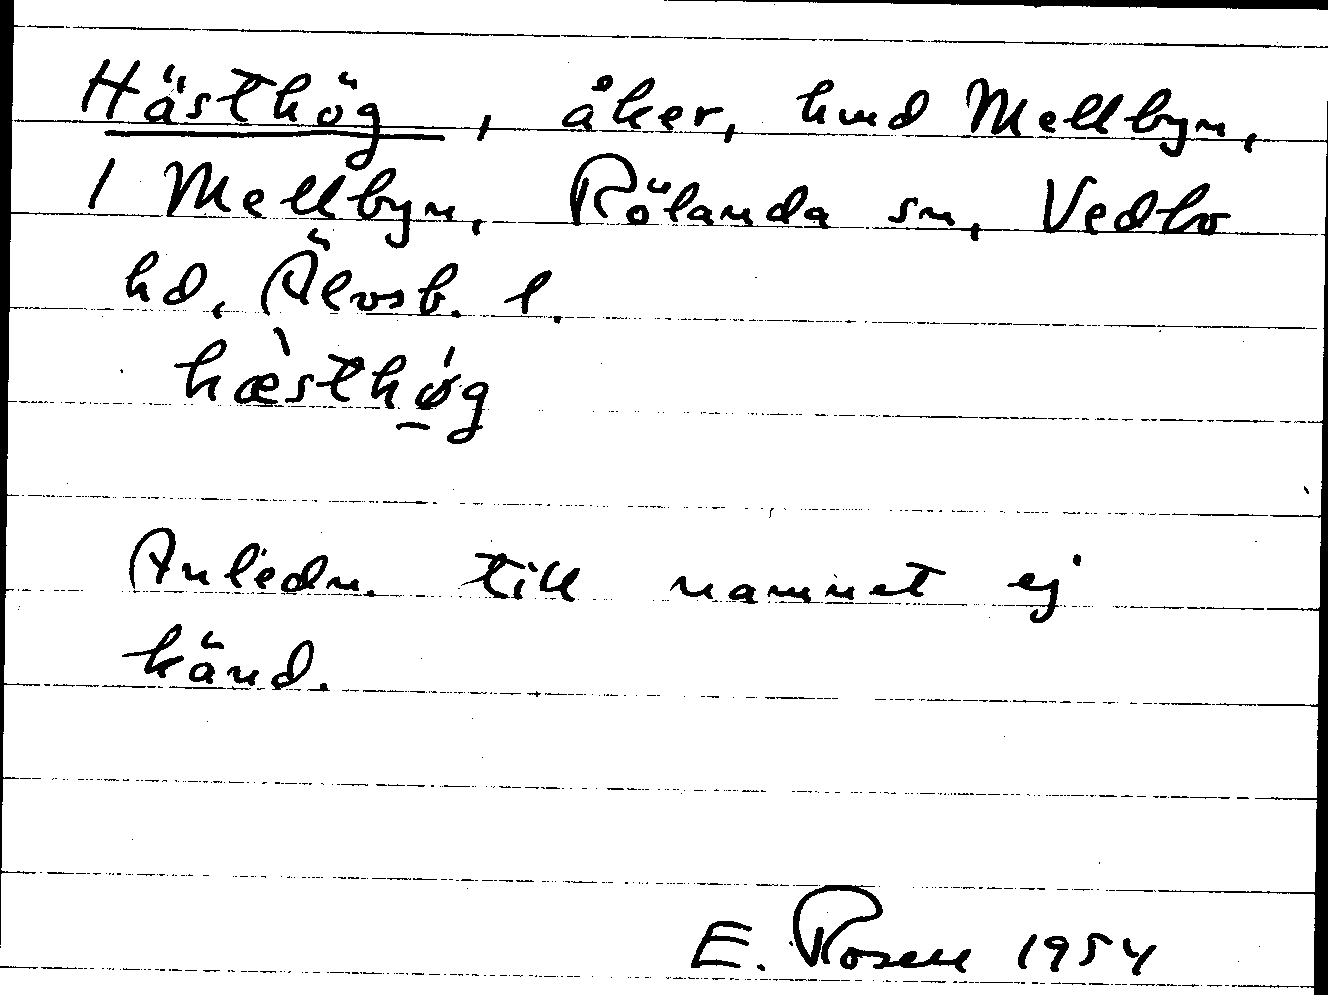 Hästhög, åker, hmd Mellbyn,
1 Mellbyn, Rölanda sn, Vedbo
hd, Älvsb. l.
hæ̀sthǿ̱g
Anledn. till namnet ej
känd.
E. Rosell 1954